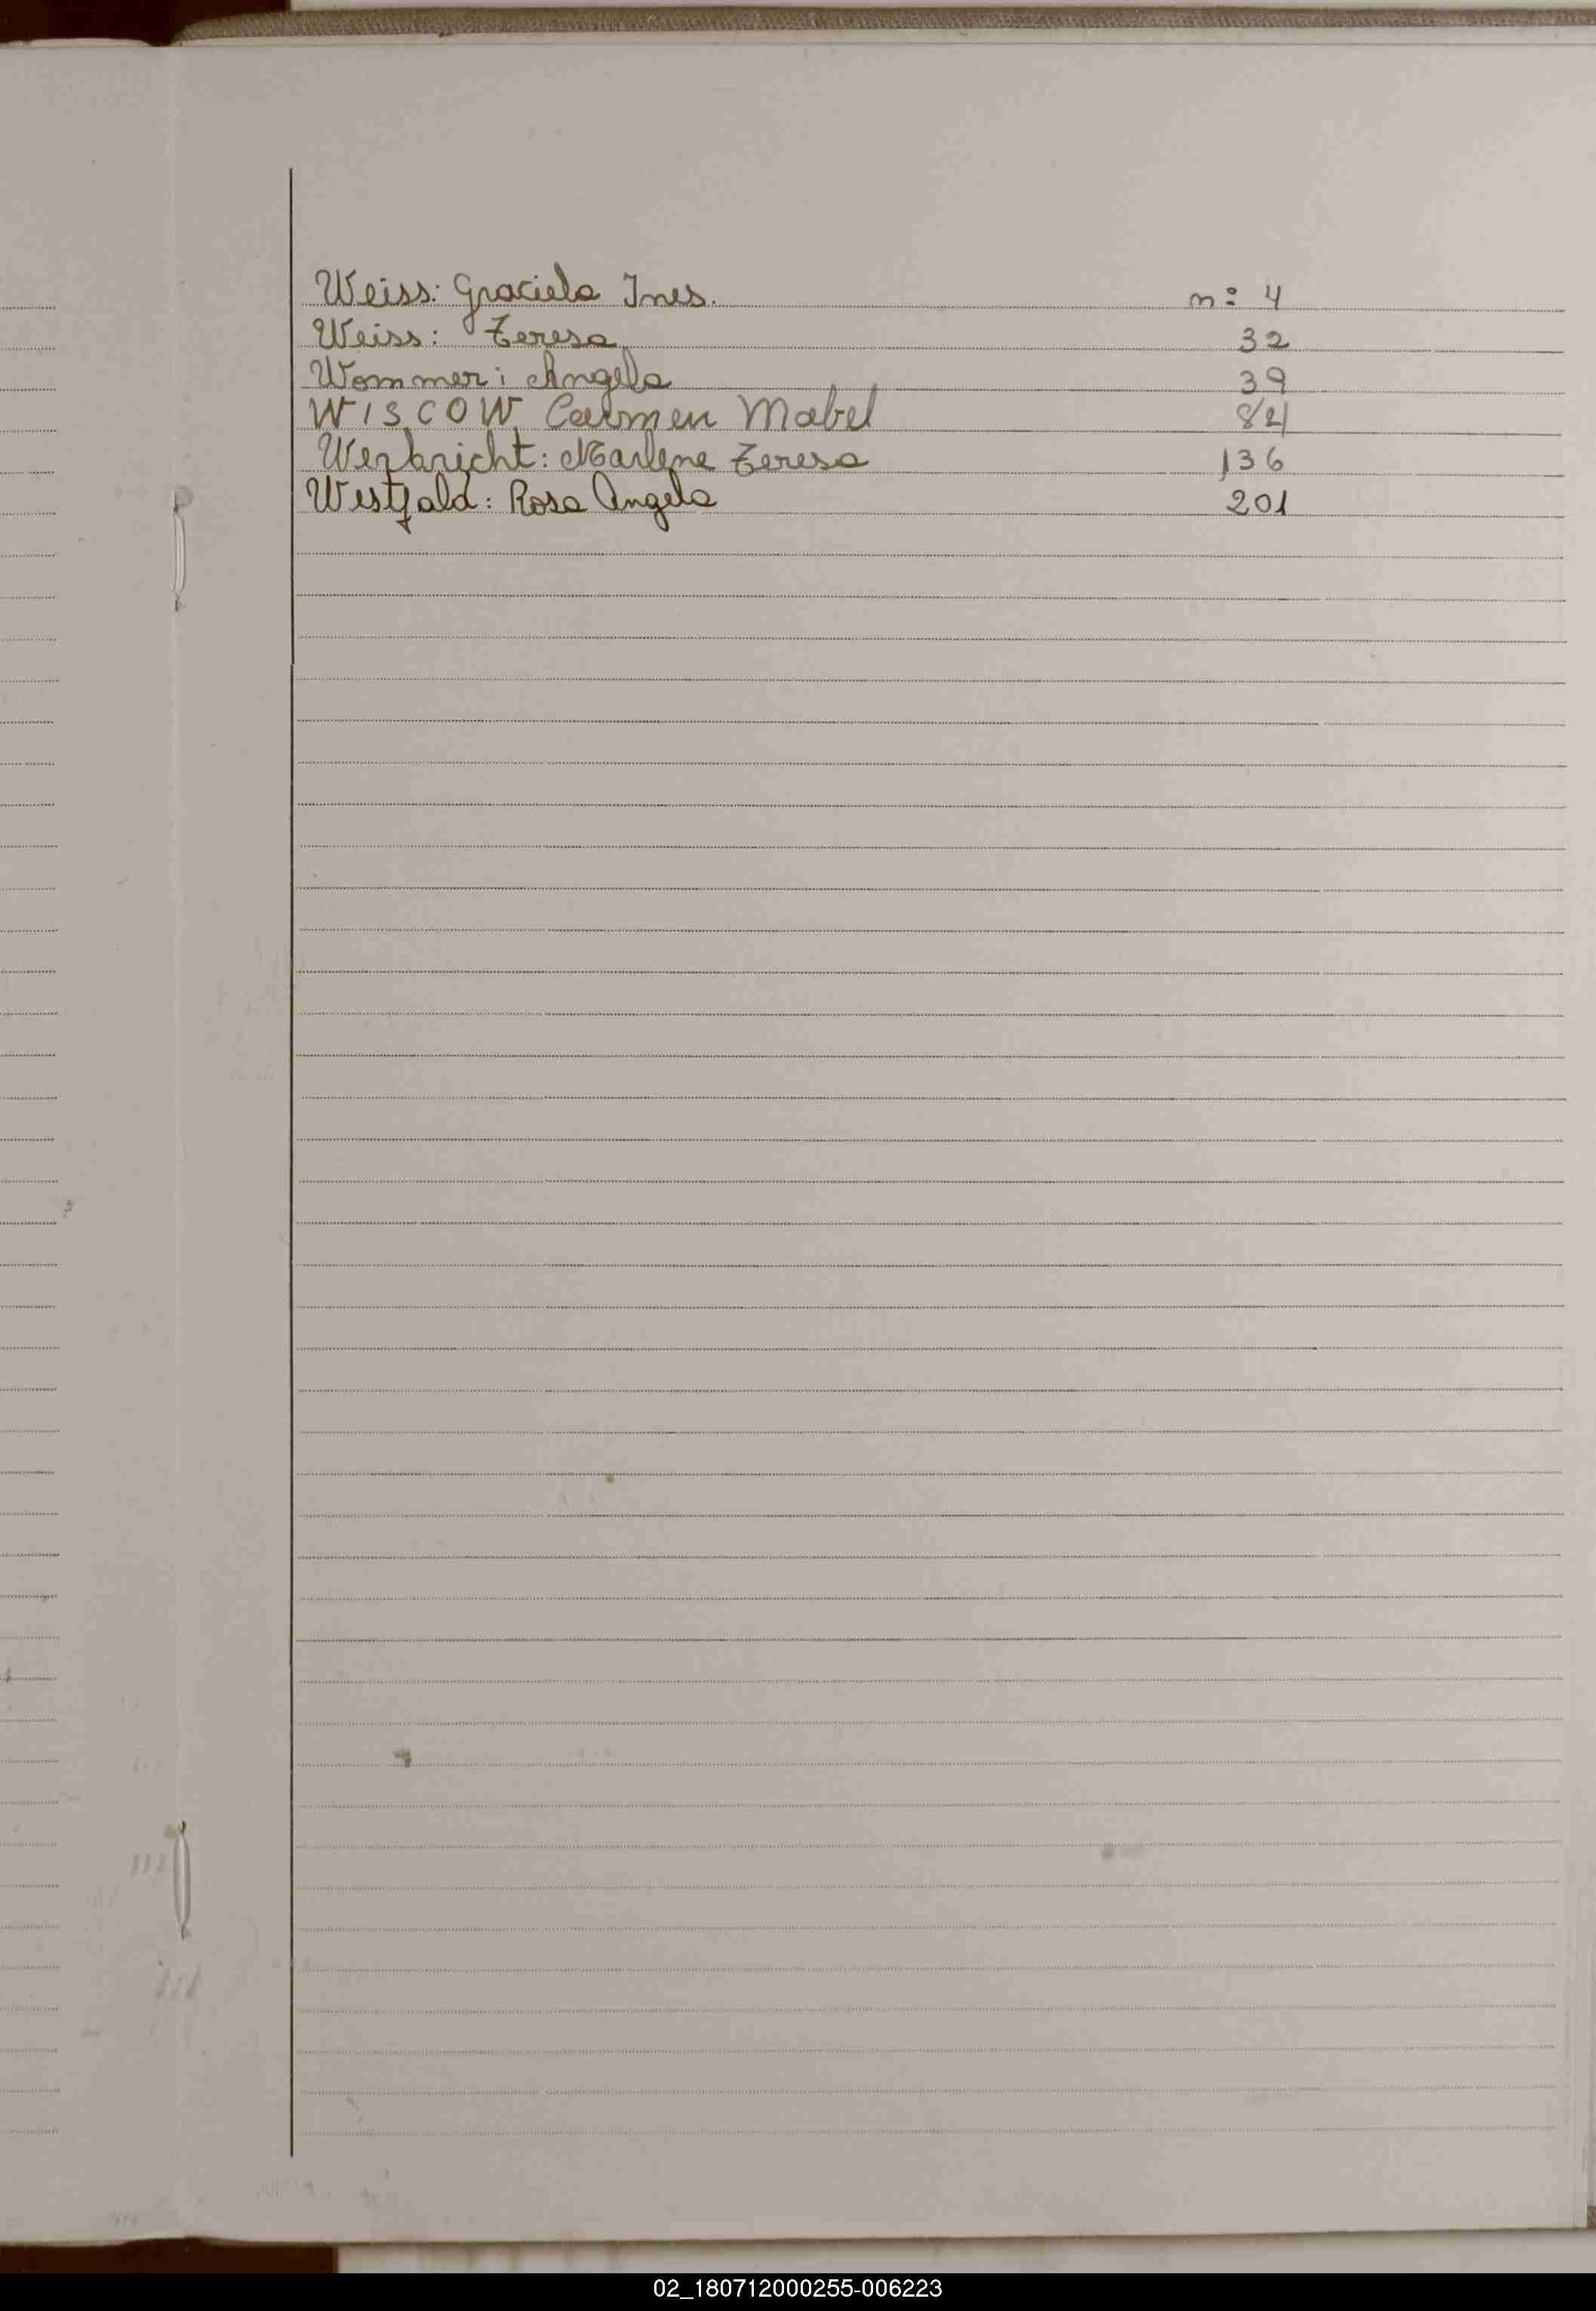 Weiss: Graciela Ines. n: 4
Weiss: Teresa 32
Wommer: Angela 39
WISCOW Carmen Mabel 84
Werbricht: Marlene Teresa 136
Westfald: Rosa Angela 201
02_180712000255-006223